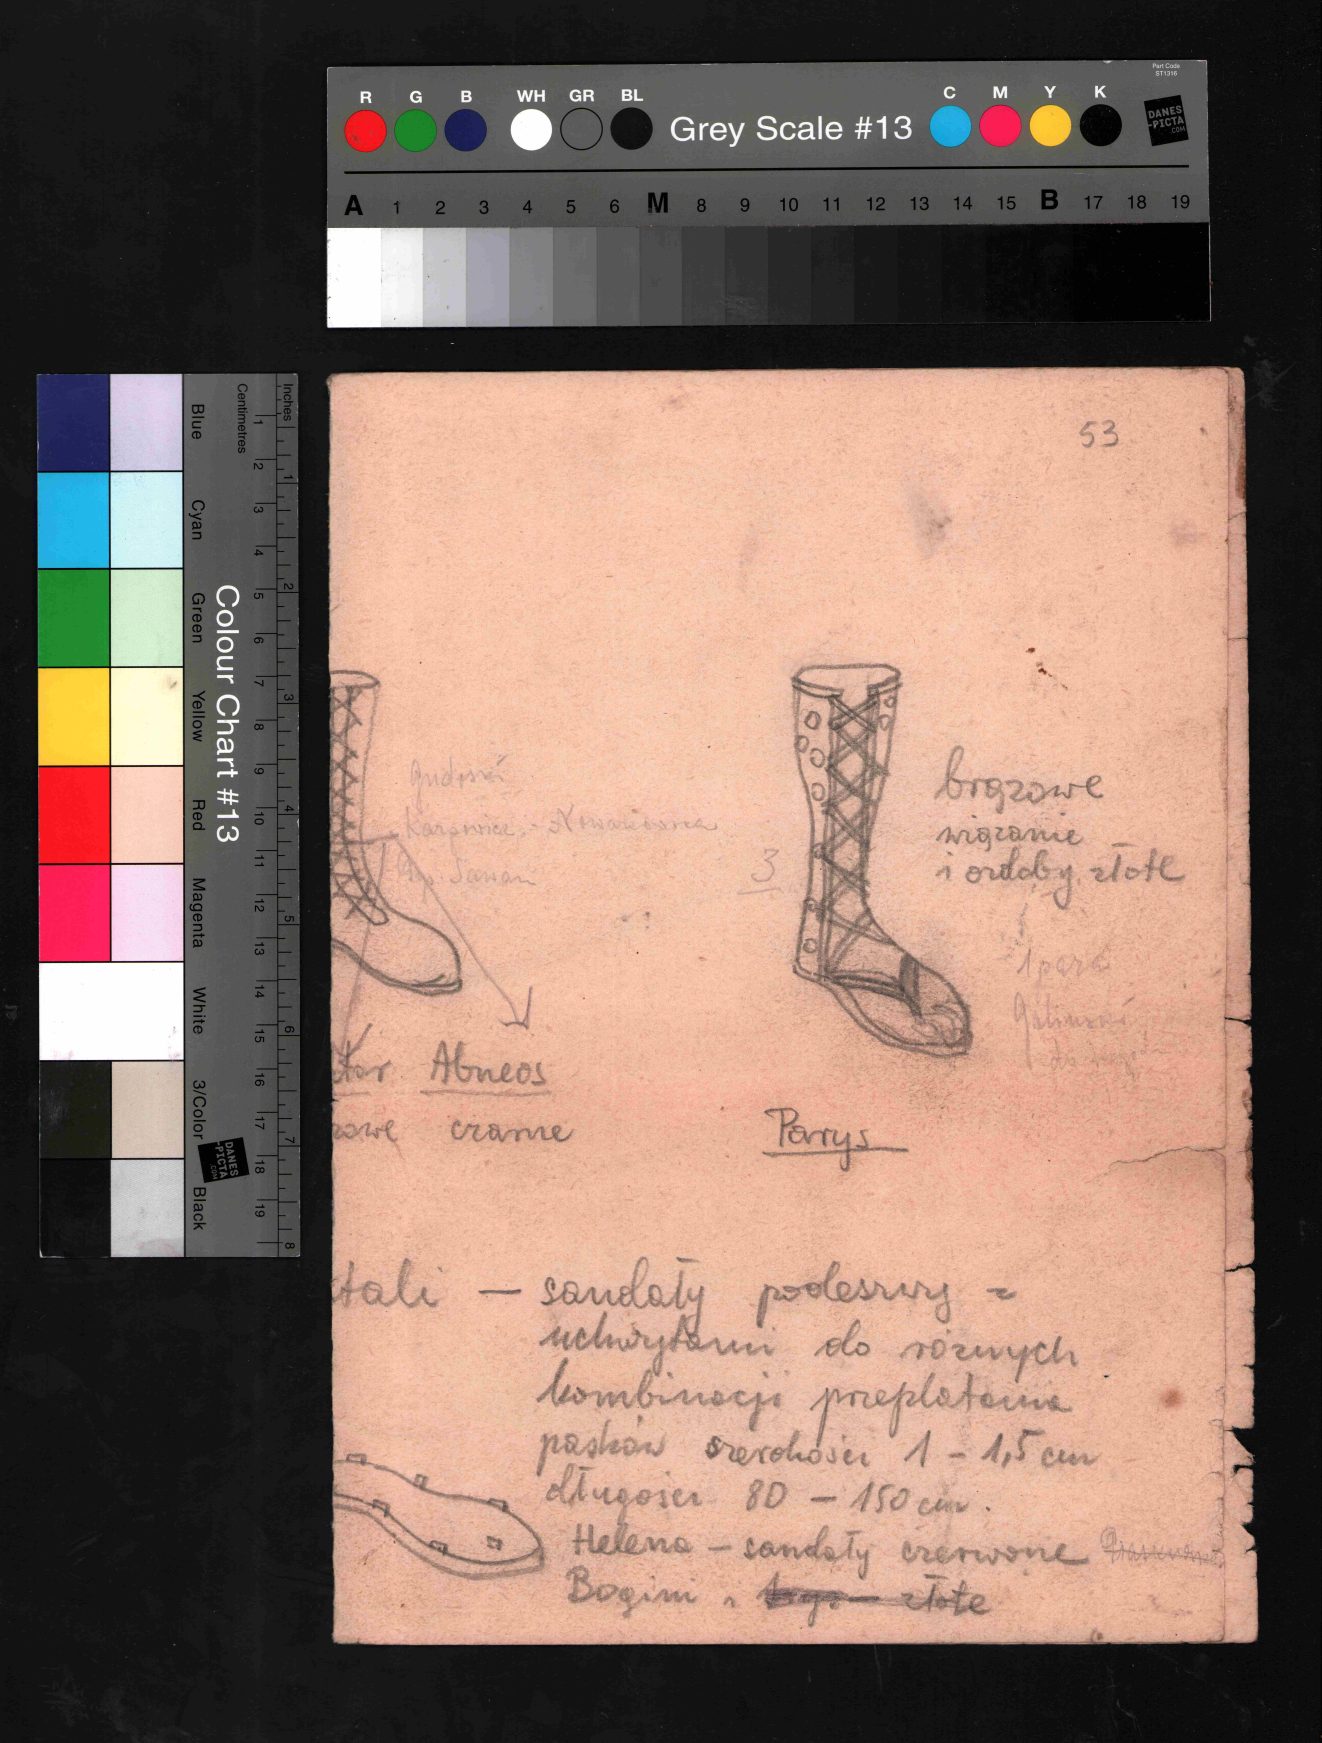 Part Code
ST1316
R G B WH GR BL Grey Scale #13 C M Y K
DANES
-PICTA
.COM
A 1 2 3 4 5 6 M 8 9 10 11 12 13 14 15 B 17 18 19
Blue Cyan Green Yellow Red Magenta White 3/Color Black
Colour Chart #13
DANES
-PICTA
.COM
Centimetres 1 2 3 4 5 6 7 8 9 10 11 12 13 14 15 16 17 18 19
Inches 1 2 3 4 5 6 7 8
53
brązowe
wiązanie
i ozdoby złote
3
1 para
Abneos
czarne
Parys
tali — sandały podeszwy z
uchwytami do różnych
kombinacji przeplatania
pasków szerokości 1 - 1,5 cm
długości 80 - 150 cm.
Helena - sandały czerwone
Bogini złote